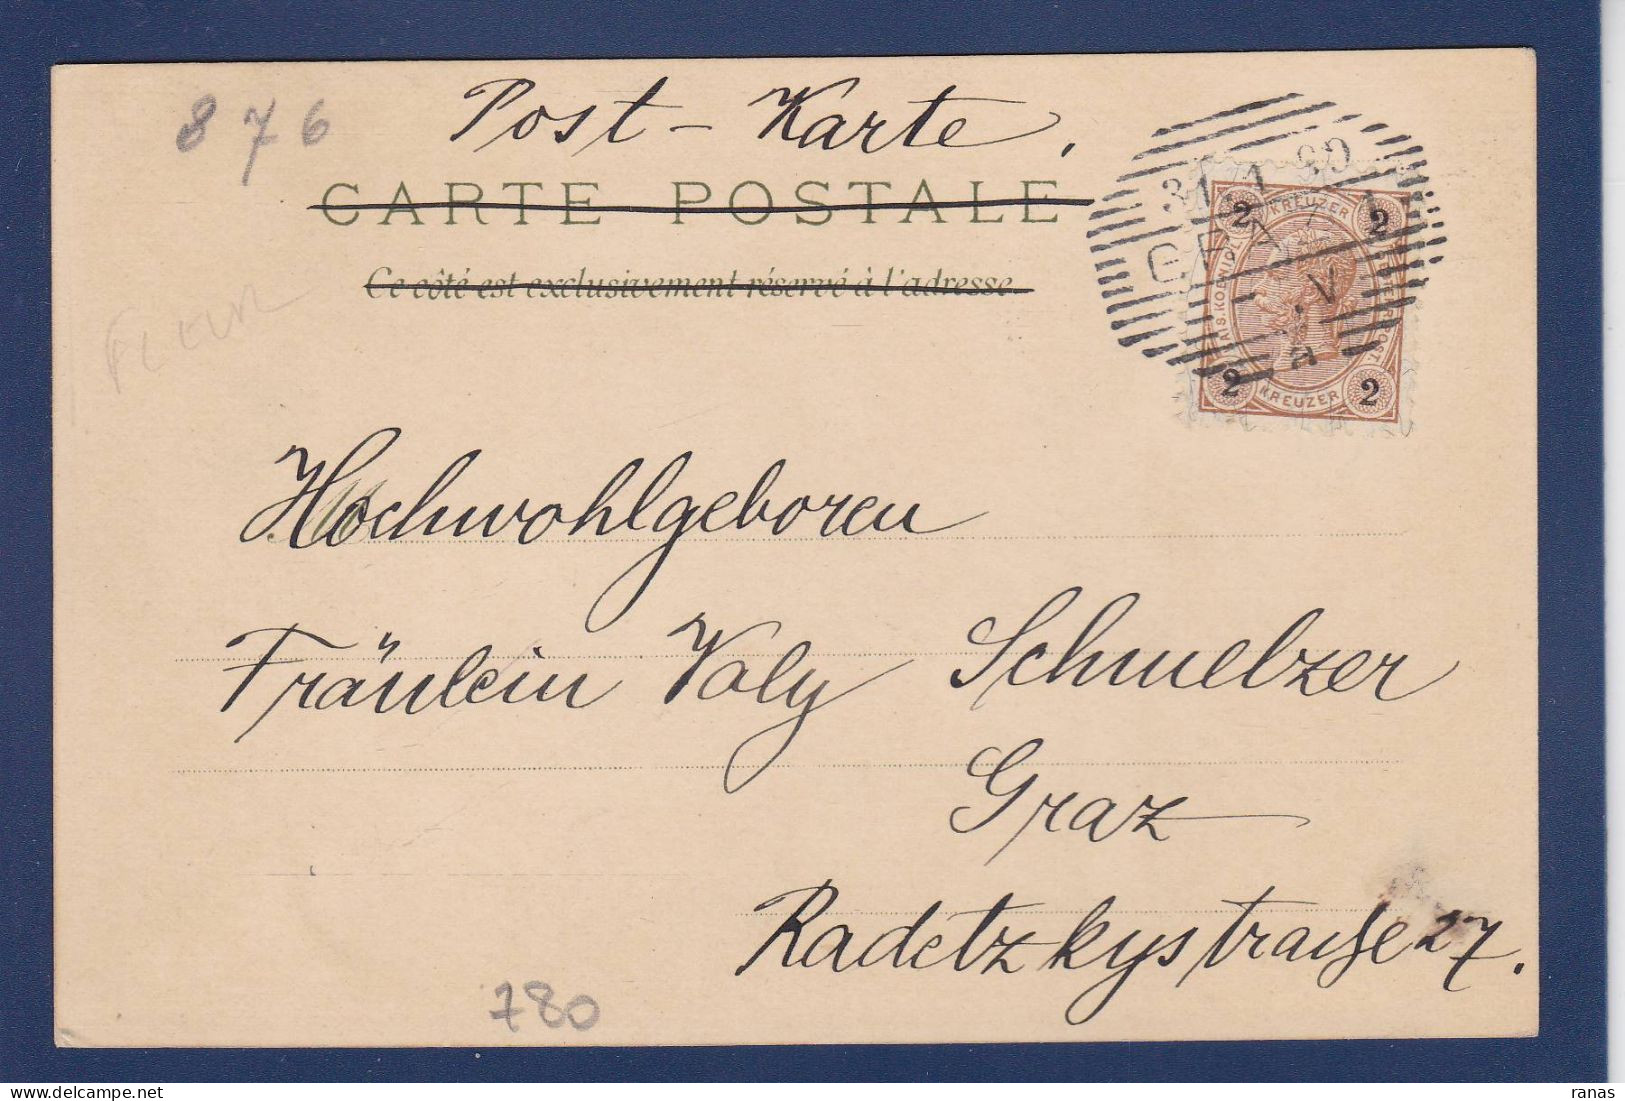 876
Post-Karte,
CARTE POSTALE
Ce côté est exclusivement réservé à l'adresse.
FLEUR
2 KREUZER 2
KAIS. KOENIGL.
2 KREUZER 2
31 1 99
Hochwohlgeboren
Fräulein Valy Schmelzer
Graz
Radetzkystraße 27.
780
ranas